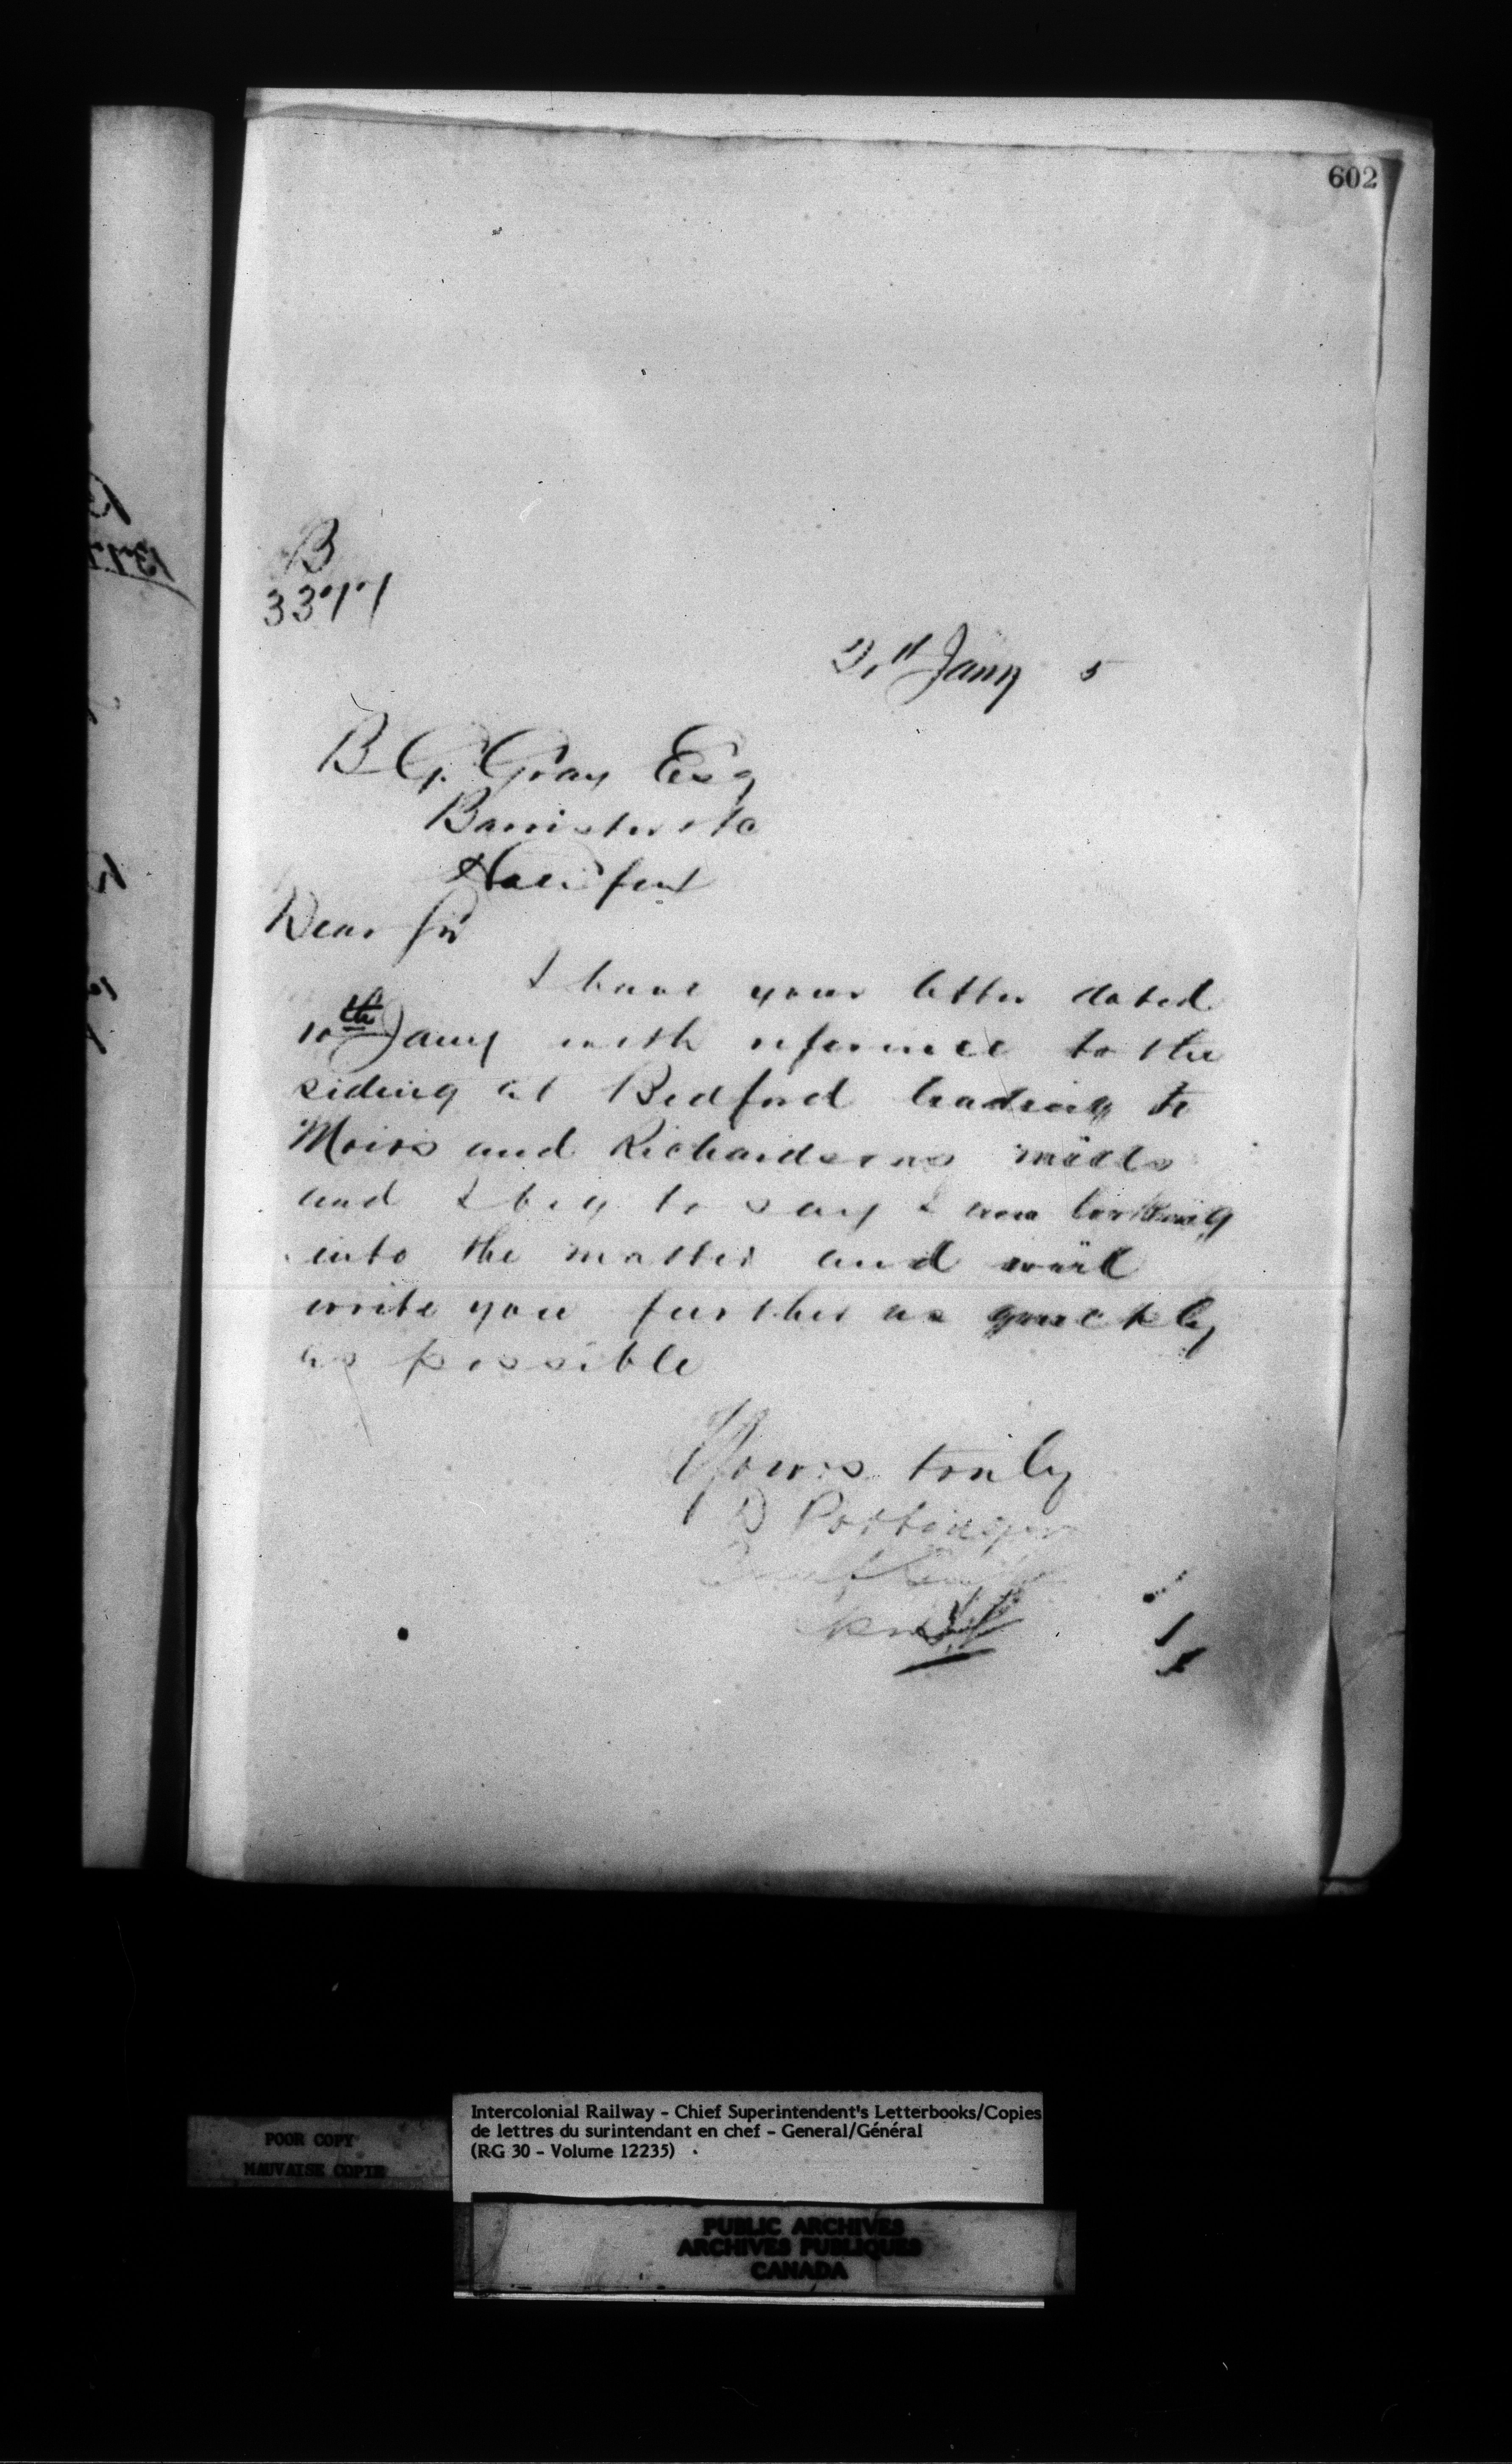 602
B
3377
21st Jany 5
B. G. Gray Esq
Barrister &c
Halifax
Dear Sir
I have your letter dated
10th Jany with reference to the
siding at Bedford leading to
Moirs and Richardsons mills
and I beg to say I am looking
into the matter and will
write you further as quickly
as possible
Yours truly
D Pottinger
Intercolonial Railway - Chief Superintendent's Letterbooks/Copies
de lettres du surintendant en chef - General/Général
(RG 30 - Volume 12235)
POOR COPY
MAUVAISE COPIE
PUBLIC ARCHIVES
ARCHIVES PUBLIQUES
CANADA